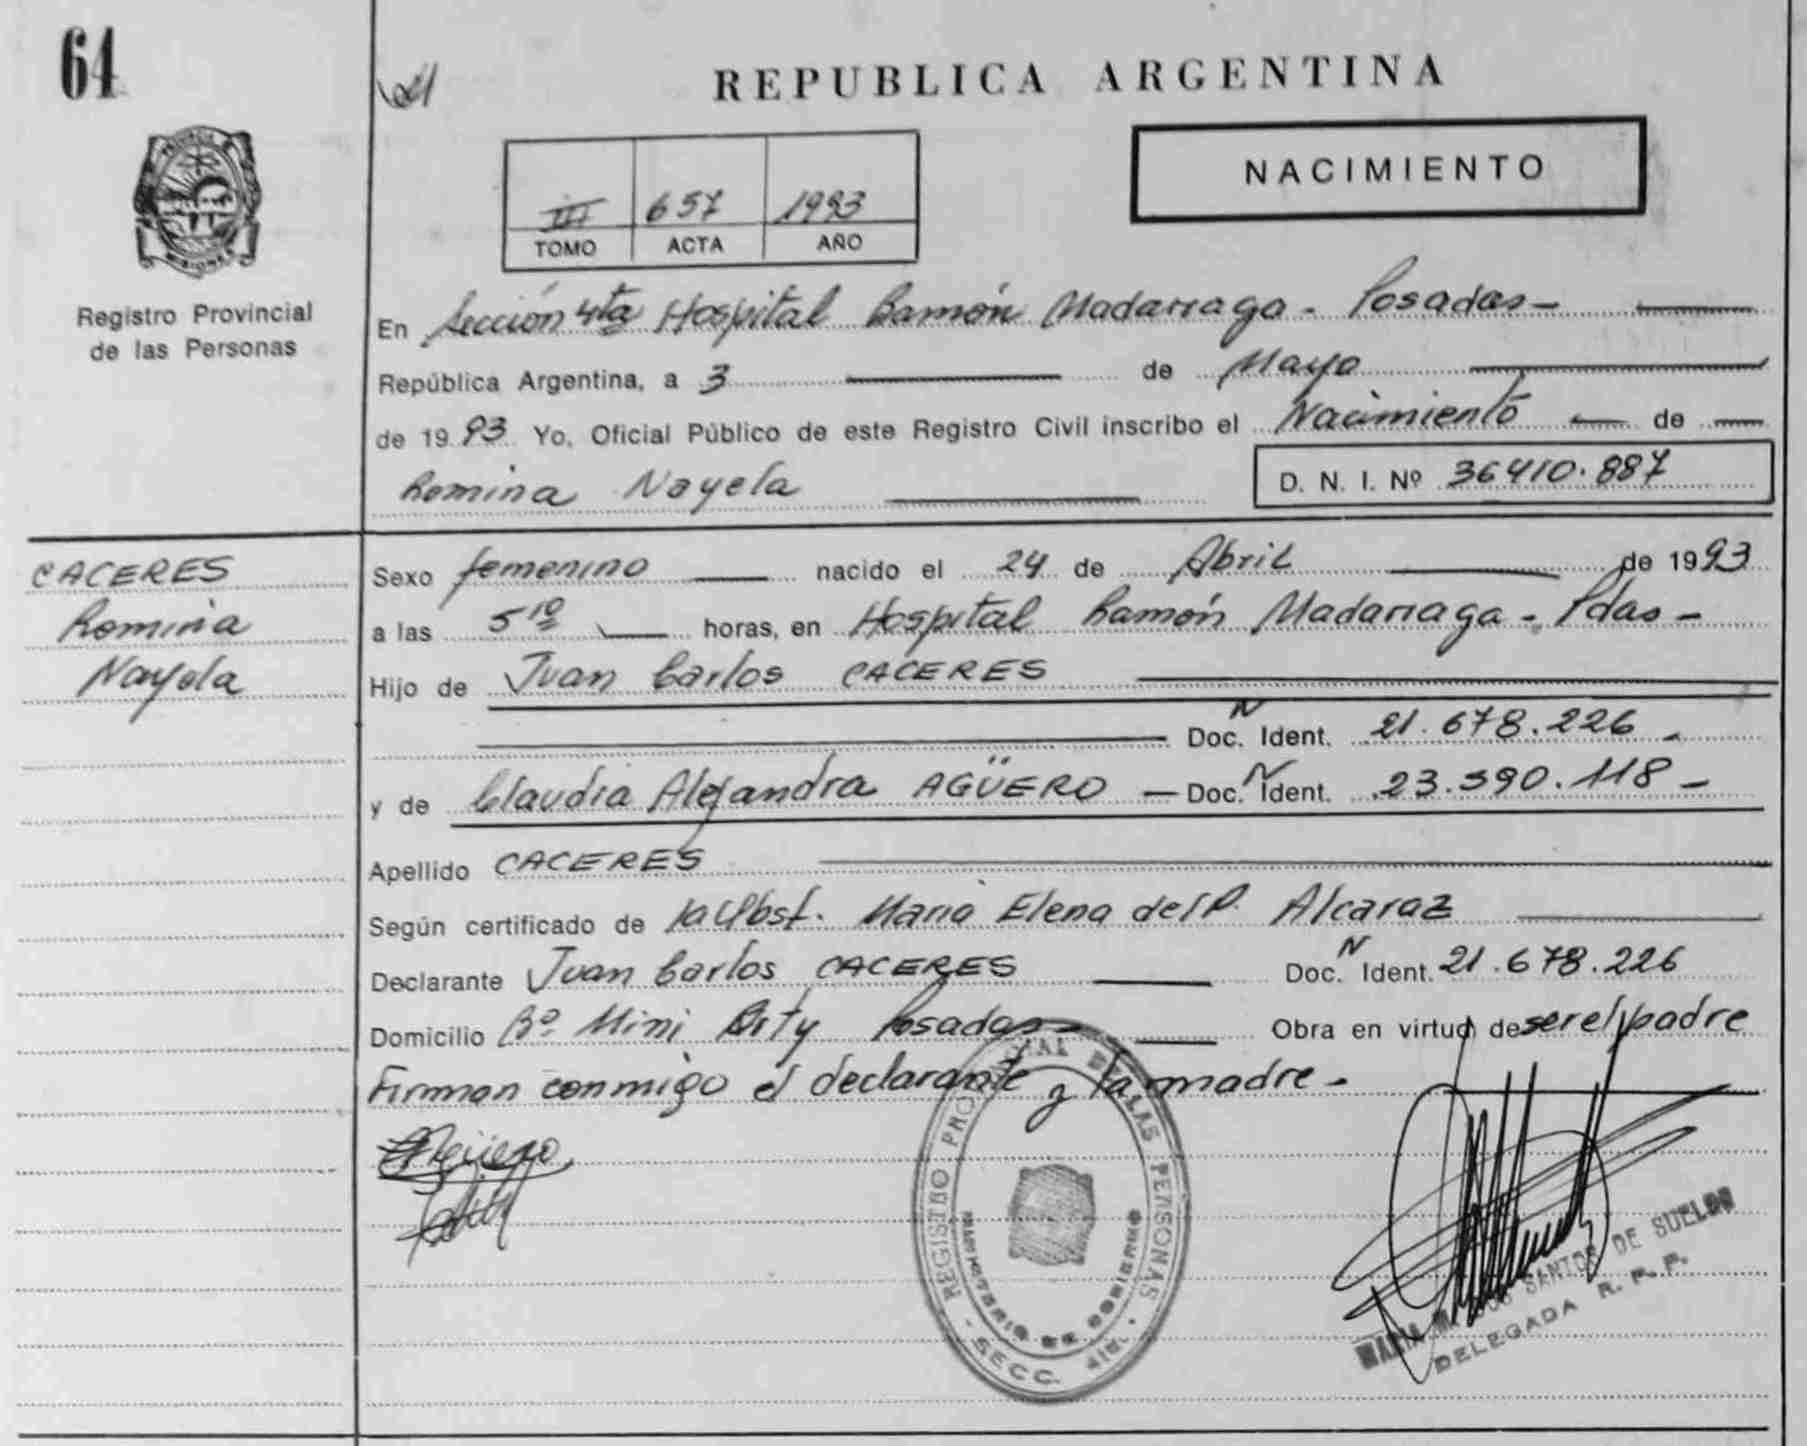 64
REPUBLICA ARGENTINA
III 657 1993
TOMO ACTA AÑO
NACIMIENTO
PROVINCIA DE
MISIONES
Registro Provincial
de las Personas
En Sección 4ta Hospital Ramón Madariaga - Posadas -
República Argentina, a 3 de Mayo
de 1993 Yo, Oficial Público de este Registro Civil inscribo el Nacimiento de
Romina Nayela
D. N. I. Nº 36410.887
CACERES
Romina
Nayela
Sexo femenino nacido el 24 de Abril de 1993
a las 5 10 horas, en Hospital Ramón Madariaga - Pdas -
Hijo de Juan Carlos CACERES
Doc. N Ident. 21.678.226 -
y de Claudia Alejandra AGÜERO — Doc. N Ident. 23.390.118 -
Apellido CACERES
Según certificado de la Obst. Maria Elena del P. Alcaraz
Declarante Juan Carlos CACERES Doc. N Ident. 21.678.226
Domicilio Bº Mini City Posadas - Obra en virtud de ser el padre
Firman conmigo el declarante y la madre -
REGISTRO PROVINCIAL DE LAS PERSONAS
MINISTERIO DE GOBIERNO
SECC.
MARIA SANTOS DE SUELDO
DELEGADA R. P. P.